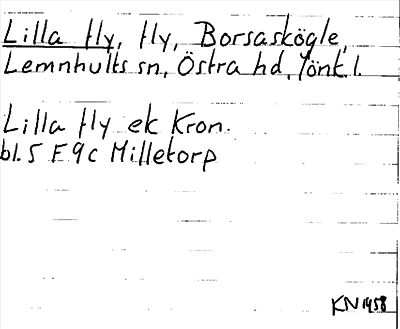 Lilla fly, fly, Borsaskögle,
Lemnhults sn, Östra hd, Jönk.l.
Lilla fly ek Kron.
bl. 5 F 9c Milletorp
KN 1958